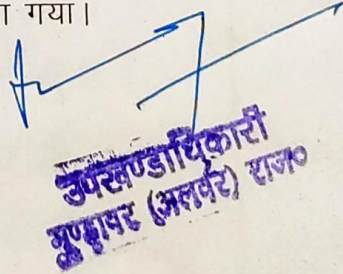 गया।
उपखण्डाधिकारी
मुण्डावर (अलवर) राज०